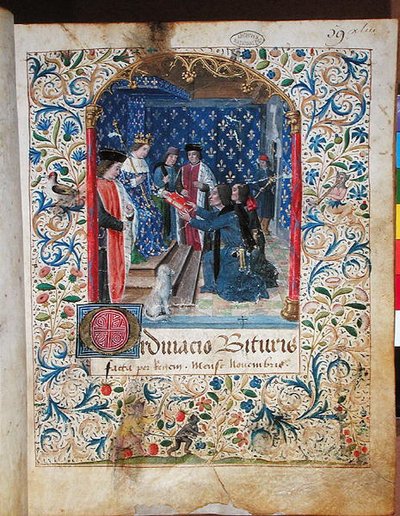 39 xliii
Ordinacio Bituris
facta per Regem. Mense Nouembris